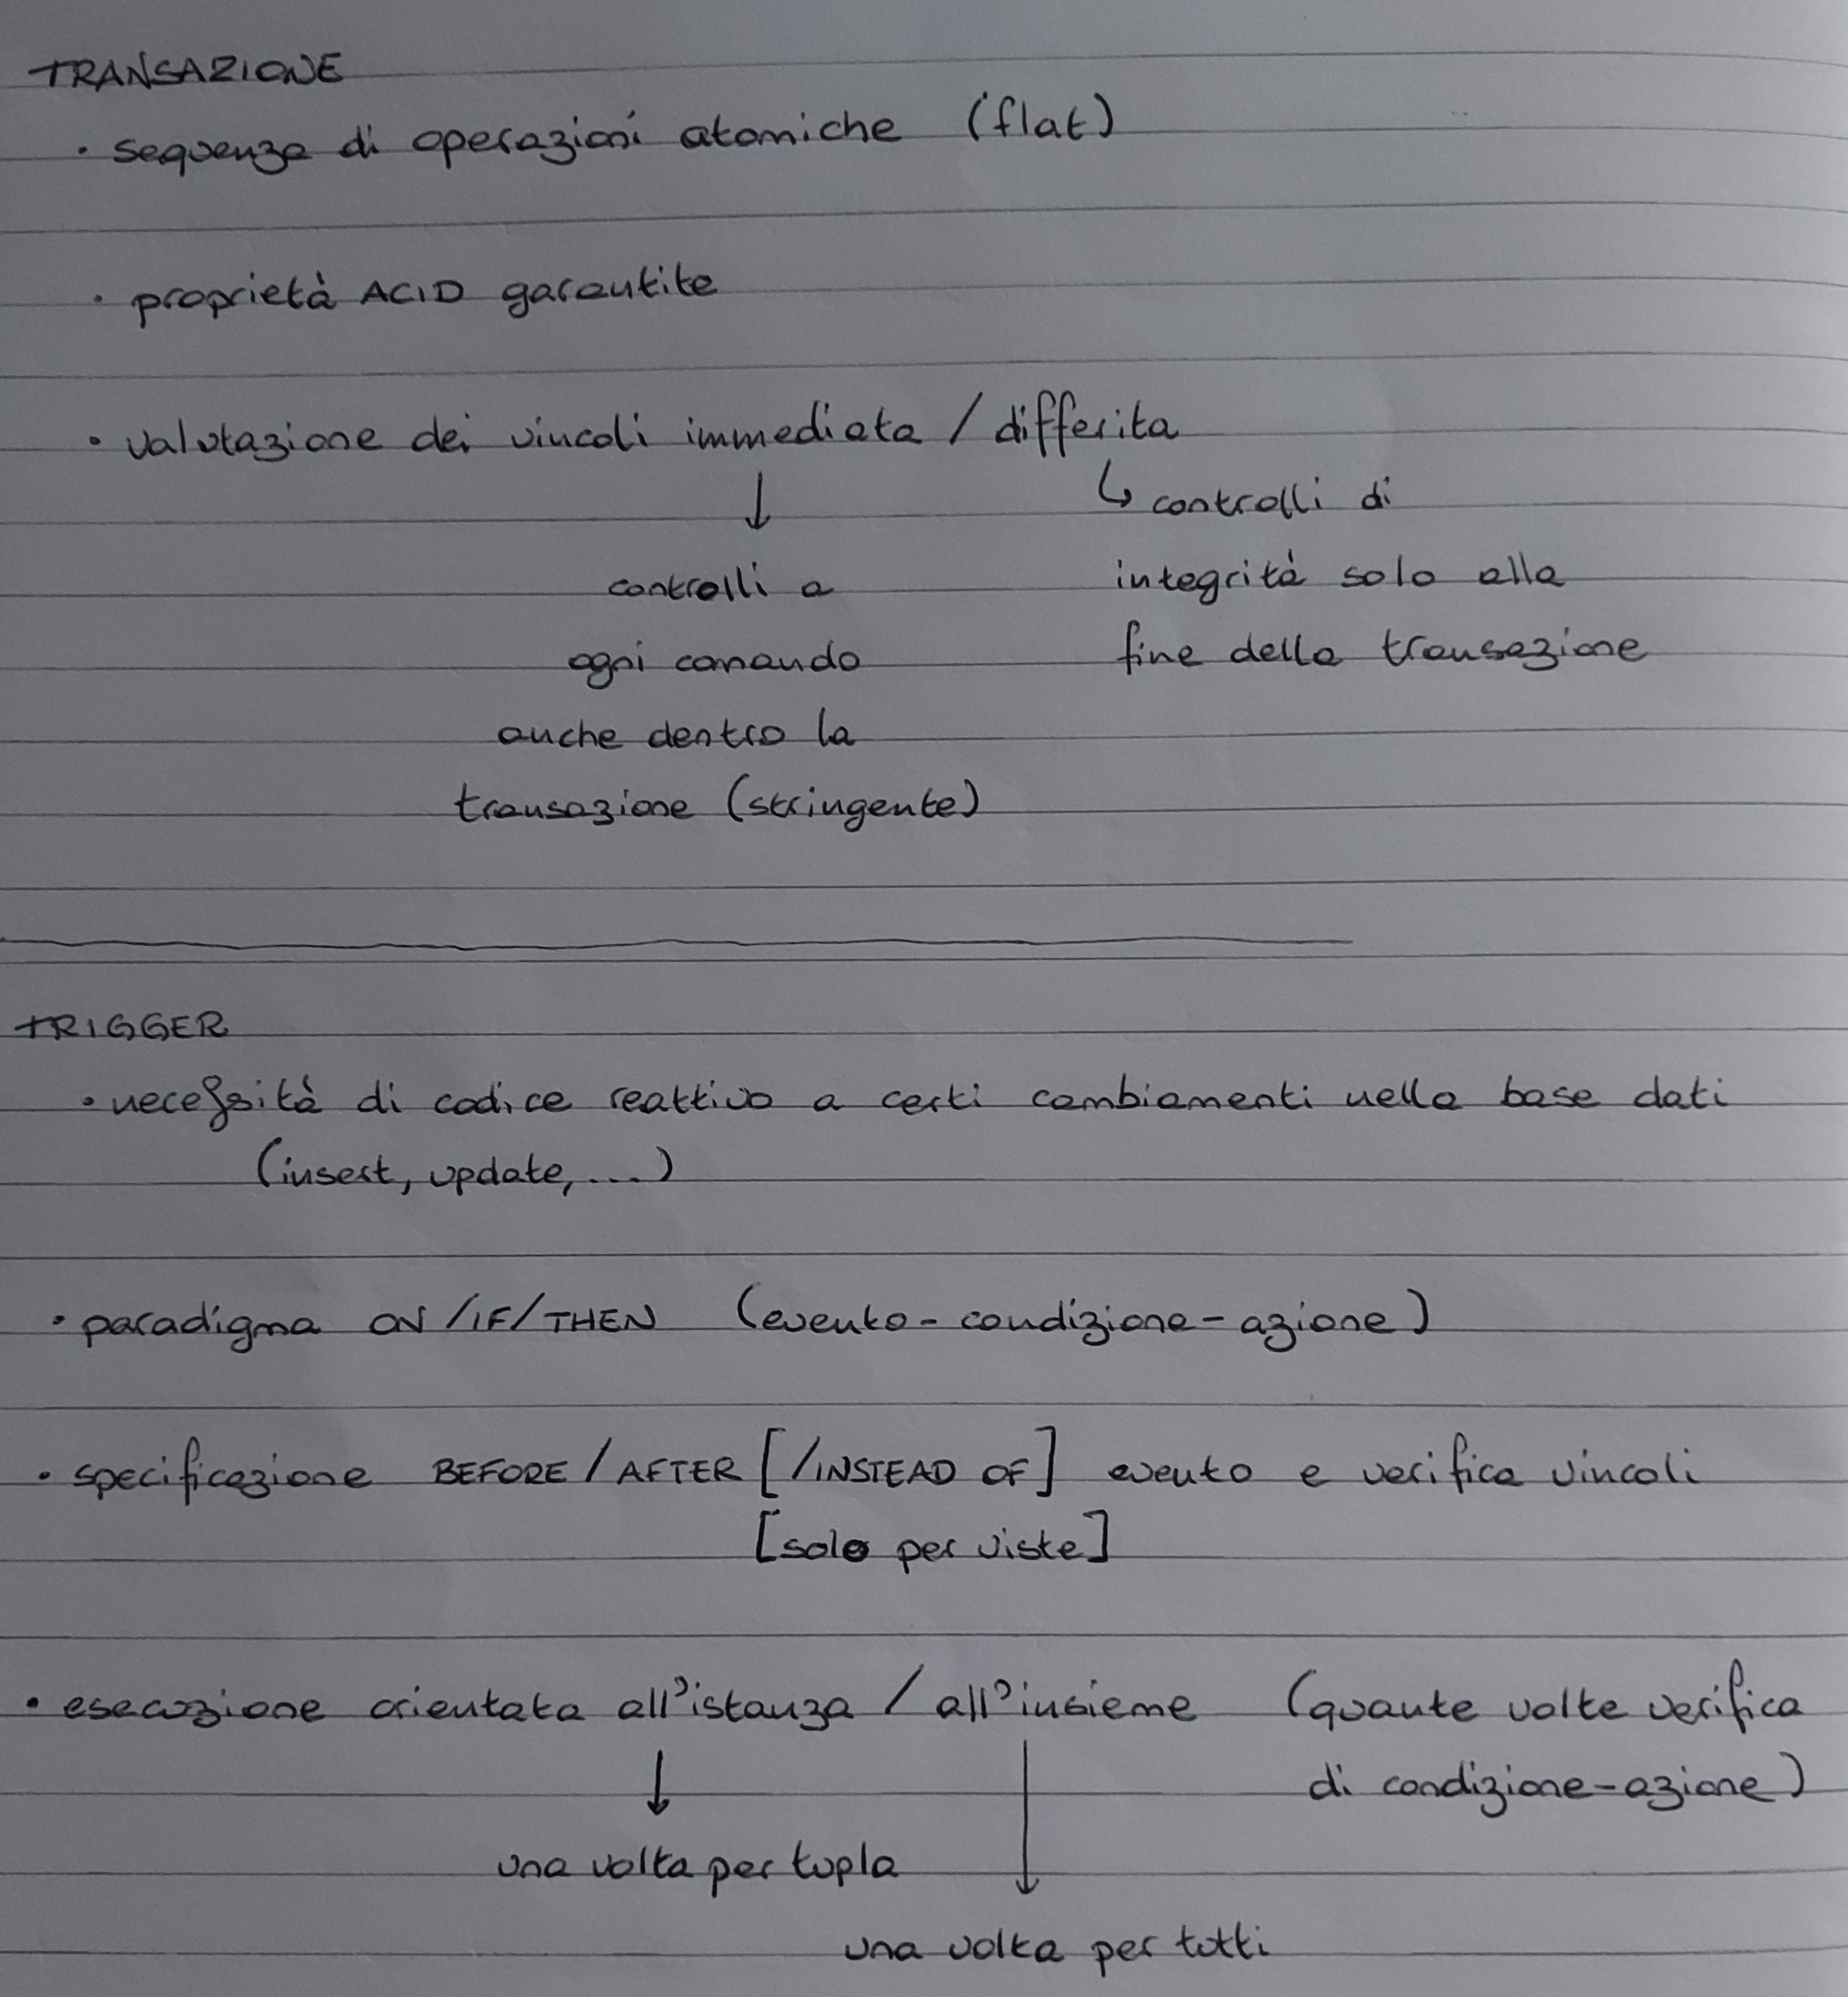 TRANSAZIONE
• sequenza di operazioni atomiche (flat)
• proprietà ACID garantite
• valutazione dei vincoli immediata / differita
↓
↳ controlli di
integrità solo alla
fine della transazione
controlli a
ogni comando
anche dentro la
transazione (stringente)
TRIGGER
• necessità di codice reattivo a certi cambiamenti nella base dati
(insert, update, ...)
• paradigma ON /IF/THEN (evento-condizione-azione)
• specificazione BEFORE/AFTER [/INSTEAD OF] evento e verifica vincoli
[solo per viste]
• esecuzione orientata all'istanza / all'insieme (quante volte verifica
di condizione-azione)
↓
una volta per tupla
↓
una volta per tutti